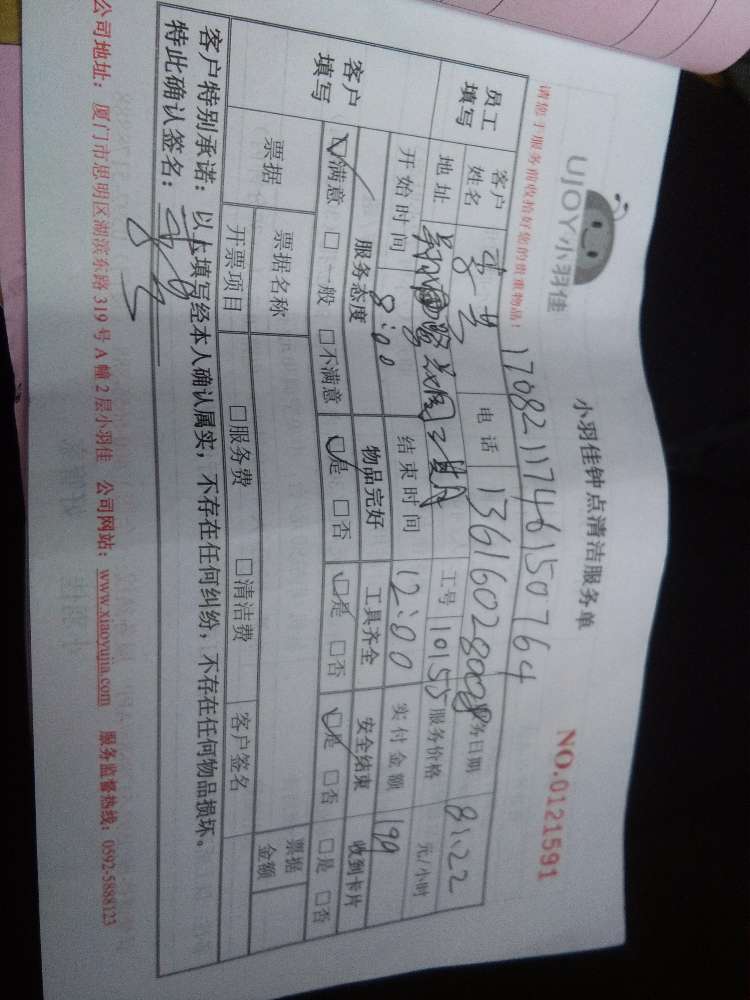 UJOY小羽佳
小羽佳钟点清洁服务单
NO.0121591
请您于服务前收拾好您的贵重物品！
1708211746150764
员工填写
客户姓名 李 电话 13616028008 服务日期 8.22
地址 二期 工号 10155 服务价格 元/小时
开始时间 8:00 结束时间 12:00 实付金额 199
客户填写
服务态度 物品完好 工具齐全 安全结束 收到卡片
☑满意 □一般 □不满意 ☑是 □否 ☑是 □否 ☑是 □否 □是 □否
票据 票据名称 票据金额
开票项目 □服务费 □清洁费 客户签名
客户特别承诺：以上填写经本人确认属实，不存在任何纠纷，不存在任何物品损坏。
特此确认签名：
公司地址：厦门市思明区湖滨东路 319 号 A 幢 2 层小羽佳 公司网站：www.xiaoyujia.com 服务监督热线：0592-5888123